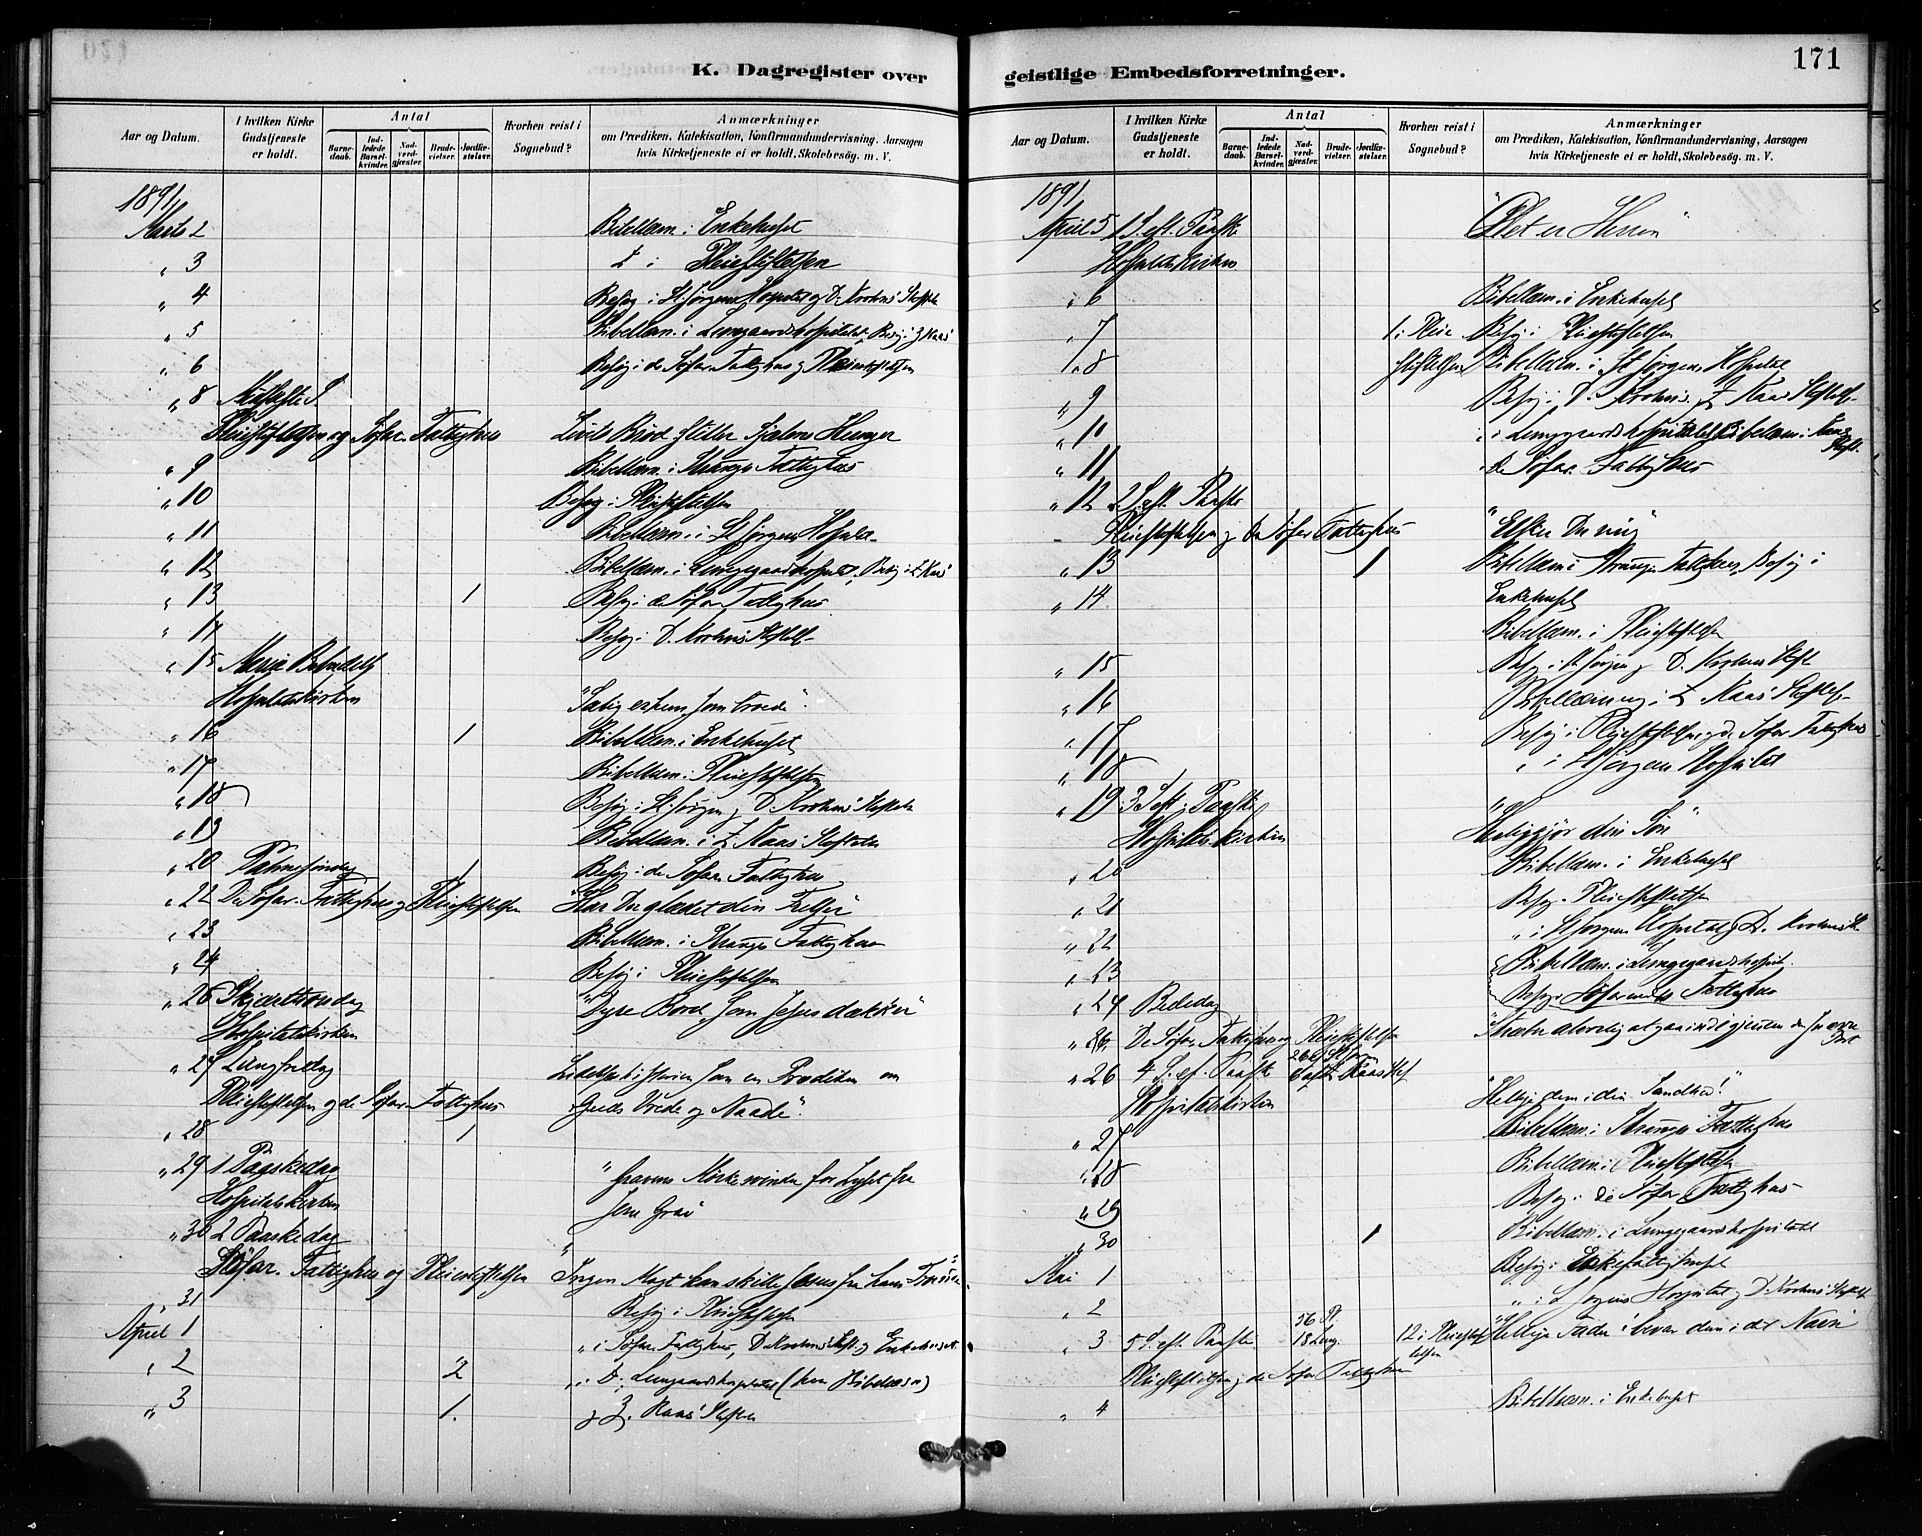 171
K. Dagregister over geistlige Embedsforretninger.
Aar og Datum.
I hvilken Kirke Gudstjeneste er holdt.
Antal
Barnedaab.
Indledede Barselkvinder.
Nadverdgjæster.
Brudevielser.
Jordfæstelser.
Hvorhen reist i Sognebud?
Anmærkninger
om Prædiken, Katekisation, Konfirmandundervisning, Aarsagen
hvis Kirketjeneste ei er holdt, Skolebesøg. m. V.
1891
Marts 2 Bibellæsn. i Enkehuset
" 3 i Pleiestiftelsen
" 4 Besøg i St. Jørgens Hospital og D. Krohns Stiftelse
" 5 Bibellæsn. i Lungegaardshospitalet, Besøg i Z. Kaas'
" 6 Besøg i de Søfar. Fattighus og Pleiestiftelsen
" 8 Midfaste S.
Pleiestiftelsen og Søfar. Fattighus Livets Brød stiller Sjælens Hunger
" 9 Bibellæsn. i Stranges Fattighus
" 10 Besøg i Pleiestiftelsen
" 11 Bibellæsn. i St. Jørgens Hospital
" 12 Bibellæsn. i Lungegaardshospital, Besøg i Z. Kaas'
" 13 1 Besøg i de Søfar. Fattighus
" 14 Besøg i D. Krohns Stiftelse
" 15 Mariæ Bebudelse
Hospitalskirken "Salig er hun som troede"
" 16 1 Bibellæsn. i Enkehuset
" 17 Bibellæsn. i Pleiestiftelsen
" 18 Besøg i St. Jørgens og D. Krohns' Stiftelse
" 19 Bibellæsn. i Z. Kaas' Stiftelse
" 20 Palmesøndag 1 Besøg i de Søfar. Fattighus
" 22 De Søfar. Fattighus og Pleiestiftelsen "Har Du glædet din Frelser"
" 23 Bibellæsn. i Stranges Fattighus
" 24 Besøg i Pleiestiftelsen
" 26 Skjærthorsdag "Dyre Bord som Jesus dækker"
Hospitalskirken
" 27 Langfredag Lidelseshistorien som en Prædiken om
Pleiestiftelsen og de Søfar. Fattighus Guds Vrede og Naade".
" 28 1
" 29 1 Paaskedag "Gravens Mørke svinder for Lyset fra
Hospitalskirken Jesu Grav
" 30 2 Paaskedag
Søfar. Fattighus og Pleiestiftelsen Ingen Magt kan skille Jesus fra hans Troende
" 31 Besøg i Pleiestiftelsen
April 1 " i Søfar. Fattighus, D. Krohns Stift. og Enkehuset
" 2 2 " i Lungegaardshospitalet (
" 3 1. og Z. Kaas' Stiftelse
Aar og Datum.
I hvilken Kirke Gudstjeneste er holdt.
Antal
Barnedaab.
Indledede Barselkvinder.
Nadverdgjæster.
Brudevielser.
Jordfæstelser.
Hvorhen reist i Sognebud?
Anmærkninger
om Prædiken, Katekisation, Konfirmandundervisning, Aarsagen
hvis Kirketjeneste ei er holdt, Skolebesøg. m. V.
1891
April 5 1 S. eft. Paaske "Det er Herren"
Hospitalskirken
" 6 Bibellæsn. i Enkehuset
" 7 1 i Pleie Besøg i Pleiestiftelsen
" 8 stiftelsen Bibellæsn. i St. Jørgens Hospital
" 9 Besøg i D. Krohns og Z. Kaas' Stiftelse
" 10 " i Lungegaardshospitalet Bibellæsn. i Kaas' Stift.
" 11 " de Søfar. Fattighus
" 12 2 S. eft. Paaske
Pleiestiftelsen og de Søfar. Fattighus "Elsker Du mig"
" 13 1 Bibellæsn. i Stranges Fattighus, Besøg i
" 14 Enkehuset
Bibellæsn. i Pleiestiftelsen
" 15 Besøg i St. Jørgens og D. Krohns Stift
" 16 Bibellæsning i Z. Kaas' Stiftelse
" 17 Besøg i Pleiestiftelsen og de Søfar. Fattighus
" 18 " i St. Jørgens Hospital
" 19 3 S. eft. Paaske "Helliggjør din Søn"
Hospitalskirken
" 20 Bibellæsn. i Enkehuset
" 21 Besøg i Pleiestiftelsen
" 22 " i St. Jørgens Hospital og D. Krohns St.
" 23 Bibellæsn. i Lungegaardshospit.
" 24 Bededag Besøg i Søfarendes Fattighus
" 26 De Søfar. Fattighus og Pleiestiftelsen
" 26 4 S. ef. Paaske "Hellige dem i din Sandhed!"
Hospitalskirken
" 27 Bibellæsn. i Stranges Fattighus
" 28 Bibellæsn. i Pleiestiftelsen
" 29 Besøg i de Søfar. Fattighus
" 30 1 Bibellæsn. i Lungegaardshospitalet
Mai 1 Besøg i
" 2 " i St. Jørgens Hospital og D. Krohns' Stiftelse
" 3 5 S. eft. Paaske 56 Pl. 18 Lung. 12 i Pleiestiftelsen "Hellige Fader bevar dem i dit Navn
Pleiestiftelsen og de Søfar. Fattighus
" 4 Bibellæsn. i Enkehuset